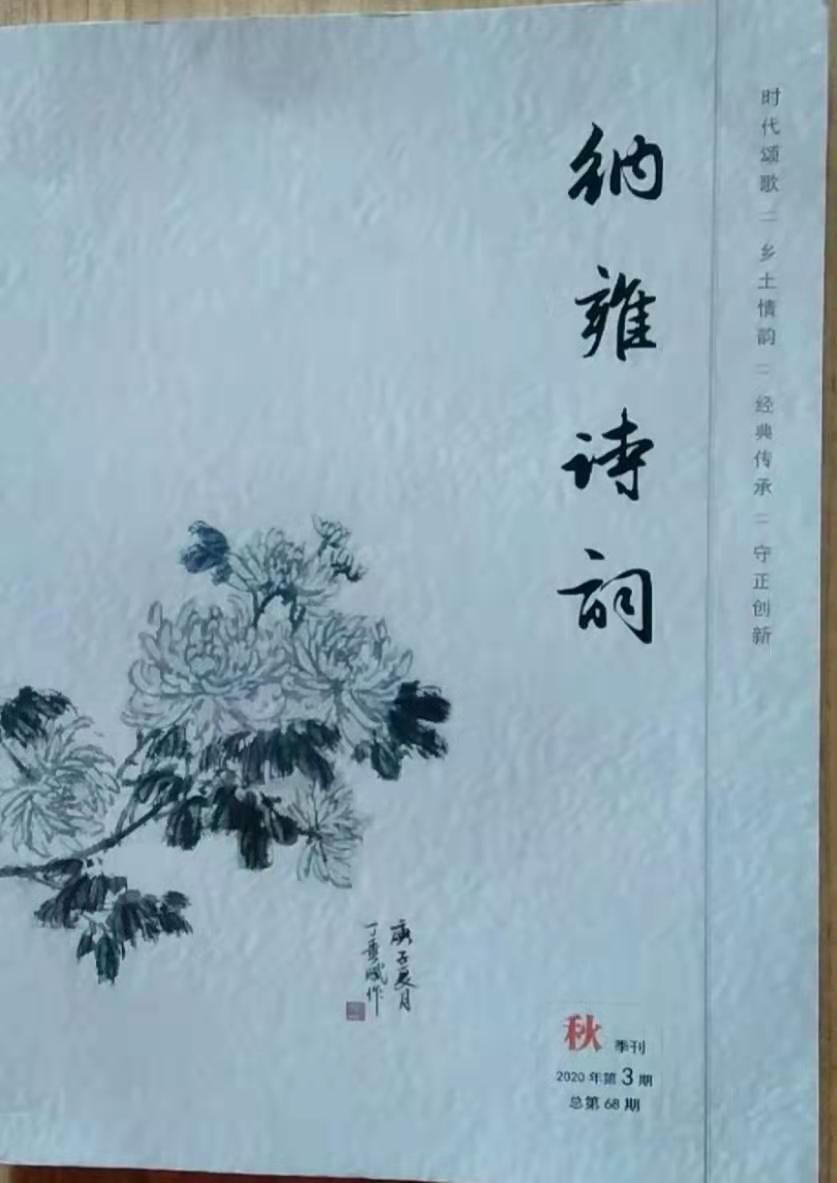 时代颂歌 = 乡土情韵 = 经典传承 = 守正创新
纳雍诗词
庚子
作
秋 季刊
2020 年第 3 期
总第 68 期